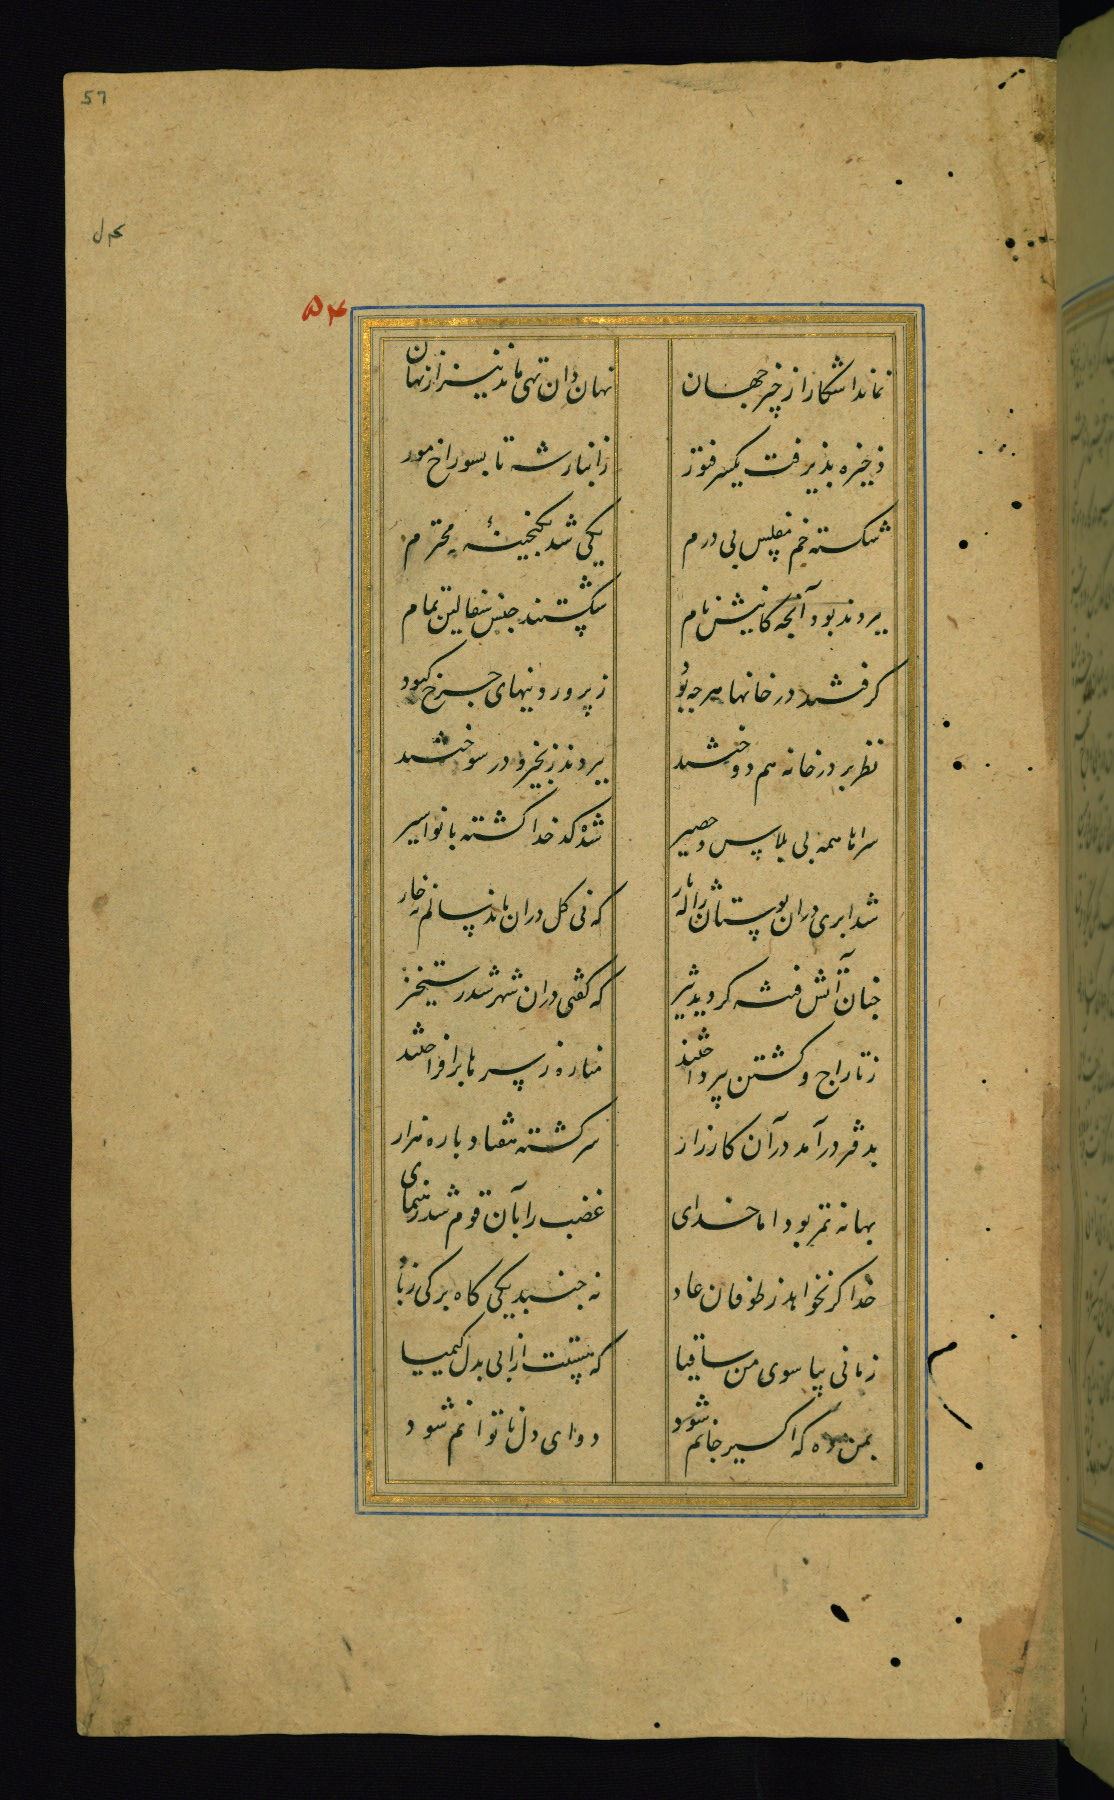 57
۵۴
نماند اشکارا ز خیر جهان نهان دان تهی ماند نیز از نهان
ذخیره پذیرفت یکسر فتور ز انبار شه تا بسوراخ مور
شکسته خم مفلس بی درم یکی شد بگنجینهٔ محترم
ببردند بود آنچه کانیش نام شکستند جنس سفالین تمام
گرفتند در خانها هرچه بود ز پروردنیهای چرخ کبود
نظر بر در خانه هم دوختند ببردند زنجیر و در سوختند
سراها همه بی پلاس و حصیر شده کدخدا کشته بانو اسیر
شد ابری دران بوستان ژاله بار که نی گل دران ماند سالم نه خار
چنان آتش فتنه گردید تیز که گفتی دران شهر شد رستخیز
ز تاراج و کشتن بپرداختند مناره ز سرها برافراختند
بدفتر درآمد در آن کارزار سر کشته هفتاد باره هزار
بهانه تمر بود اما خدای غضب را بآن قوم شد رهنمای
خدا گر نخواهد ز طوفان عاد نه جنبد یکی کاه برگی ز باد
زمانی بیا سوی من ساقیا که هستت ازان بی بدل کیمیا
بمن ده که اکسیر جانم شود دوای دل ناتوانم شود